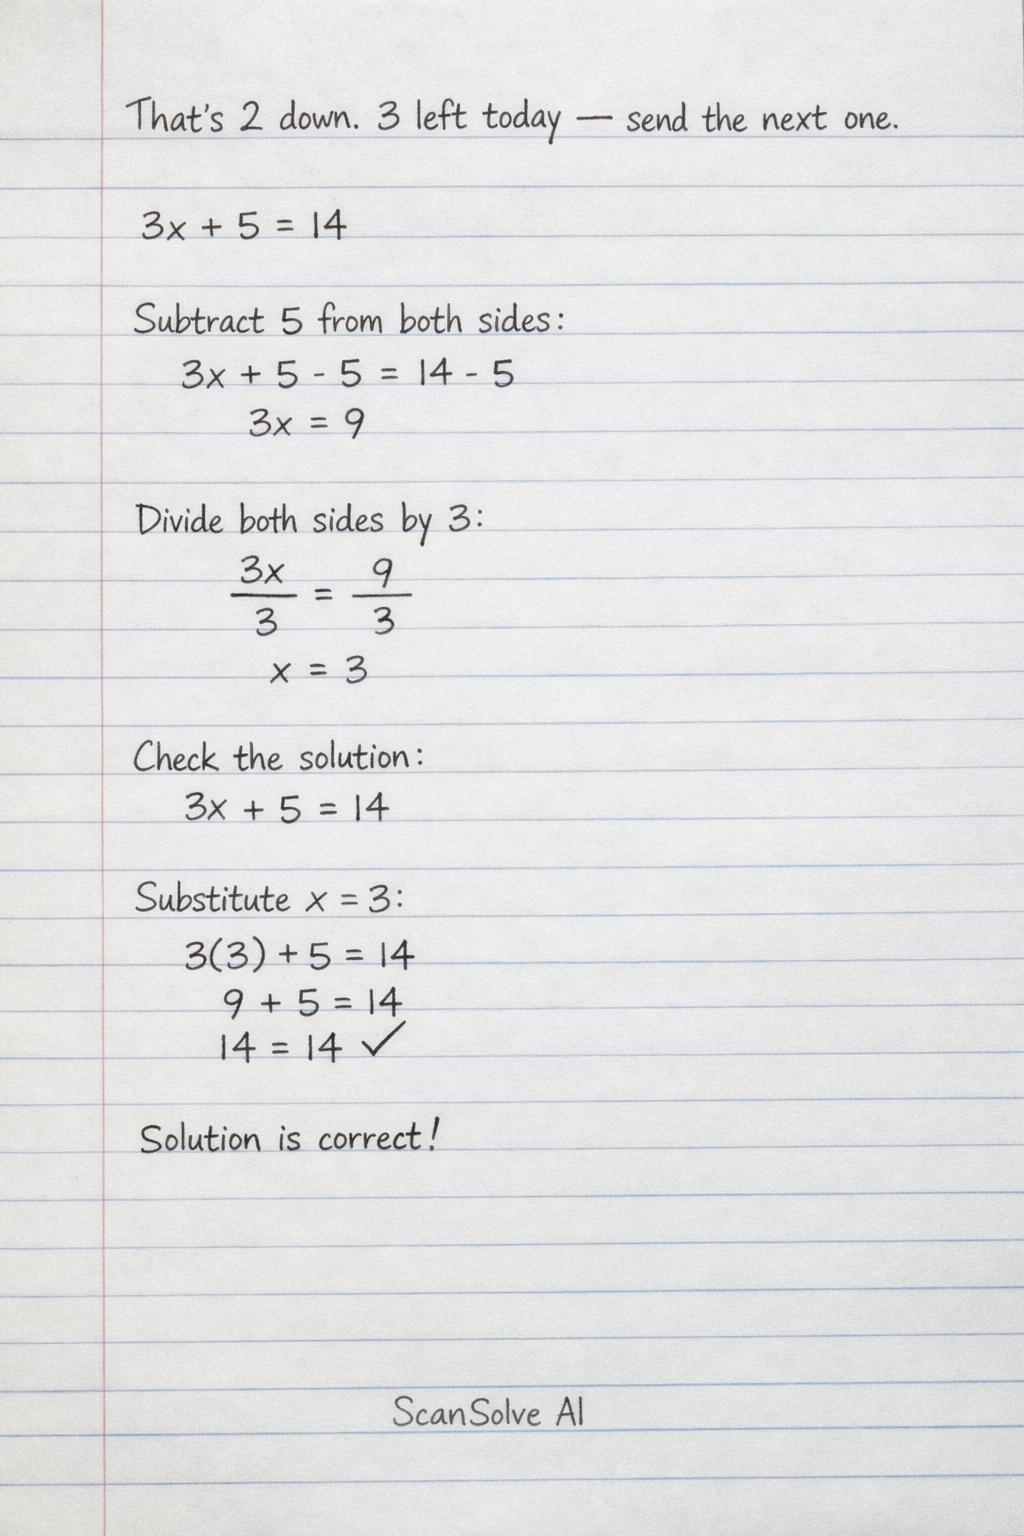 That's 2 down. 3 left today — send the next one.
3x + 5 = 14
Subtract 5 from both sides:
3x + 5 - 5 = 14 - 5
3x = 9
Divide both sides by 3:
3x/3 = 9/3
x = 3
Check the solution:
3x + 5 = 14
Substitute x = 3:
3(3) + 5 = 14
9 + 5 = 14
14 = 14 ✓
Solution is correct!
ScanSolve AI